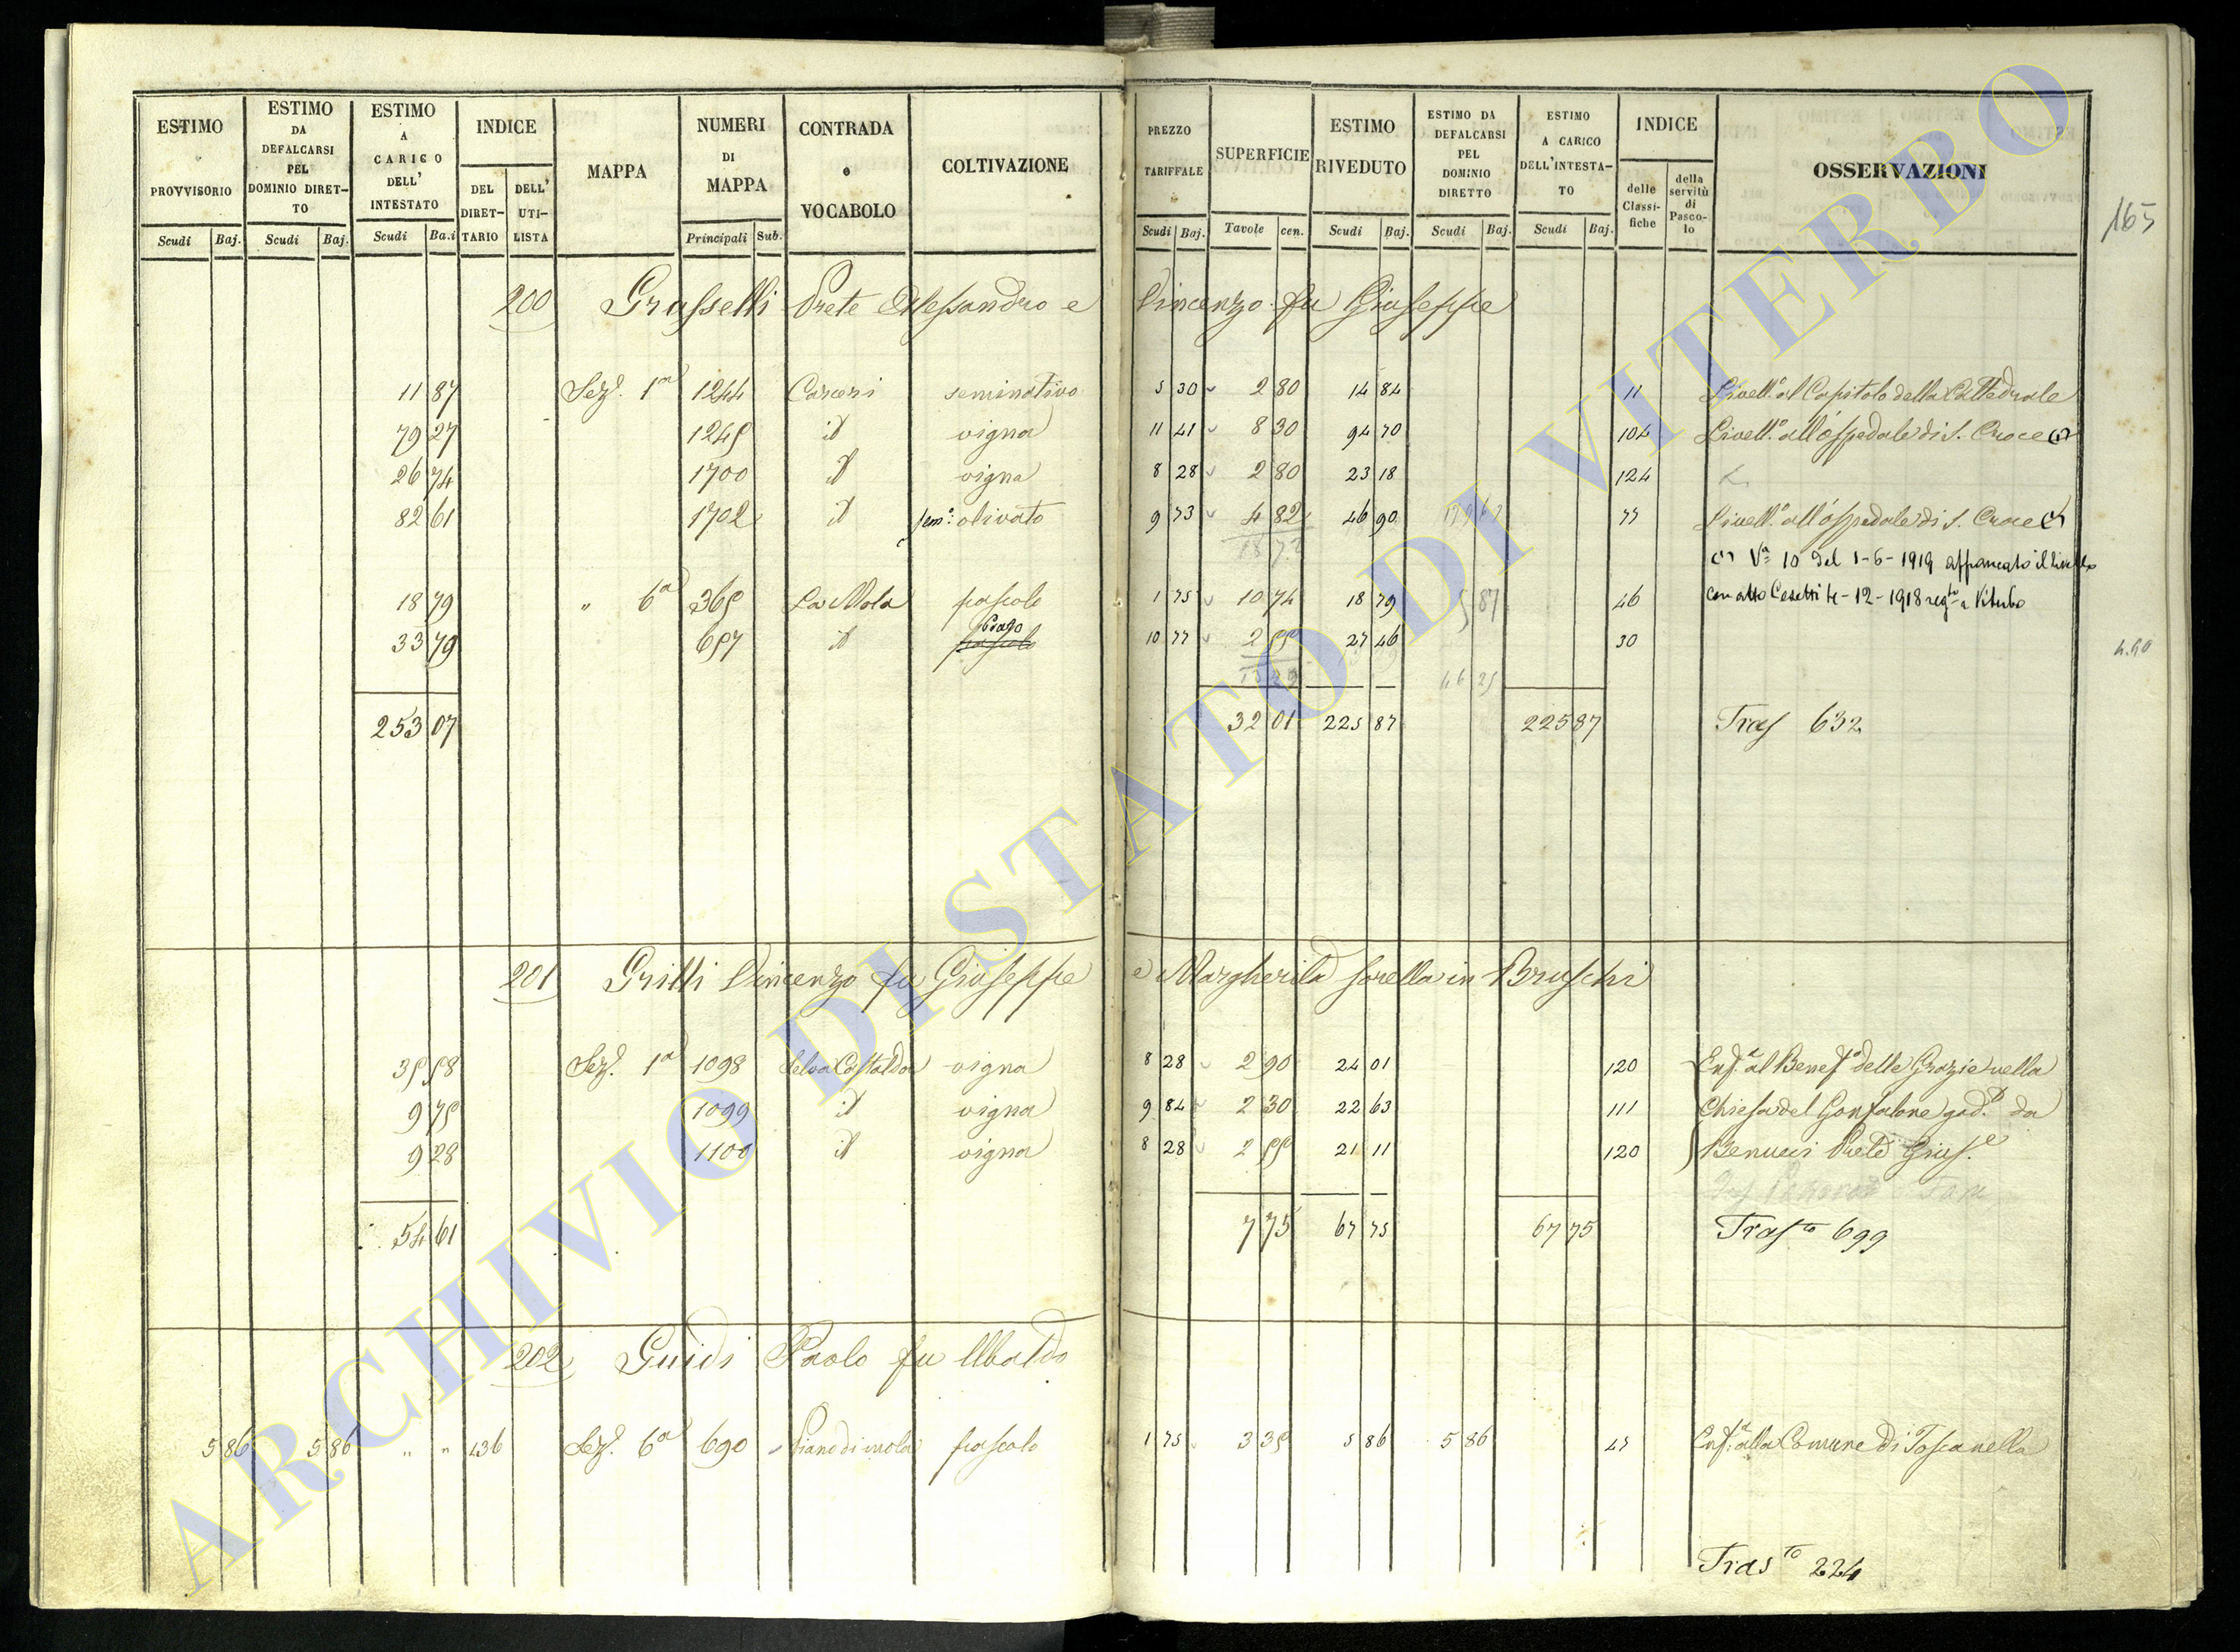 ESTIMO PROVVISORIO Scudi Baj.
ESTIMO DA DEFALCARSI PEL DOMINIO DIRETTO Scudi Baj.
ESTIMO A CARICO DELL' INTESTATO Scudi Ba.i
INDICE DEL DIRETTARIO DELL' UTILISTA
MAPPA
NUMERI DI MAPPA Principali Sub.
CONTRADA e VOCABOLO
COLTIVAZIONE
PREZZO TARIFFALE Scudi Baj.
SUPERFICIE Tavole cen.
ESTIMO RIVEDUTO Scudi Baj.
ESTIMO DA DEFALCARSI PEL DOMINIO DIRETTO Scudi Baj.
ESTIMO A CARICO DELL'INTESTATO Scudi Baj.
INDICE delle Classifiche della servitù di Pascolo
OSSERVAZIONI
165
200 Grasselli Prete Alessandro e Vincenzo fu Giuseppe
11 87 Sez. 1a 1244 Carceri seminativo 5 30 2 80 14 84 11 Livell.o al Capitolo della Cattedrale
79 27 1245 id vigna 11 41 8 30 94 70 104 Livell.o all'ospedale di S. Croce (1)
26 74 1700 id vigna 8 28 2 80 23 18 124
82 61 1702 id sem.o olivato 9 73 4 82 46 90 77 Livell.o all'ospedale di S. Croce
18 72
(1) Va 10 del 1-6-1919 affrancato il livello
18 79 " 6a 365 La Mola pascolo 1 75 10 74 18 79 5 87 46 con atto Cesetti 4-12-1918 regto a Viterbo
33 79 657 id pascolo prato 10 77 2 55 27 46 30
4.90
13 29 46 25
253 07 32 01 225 87 225 87 Tras 632
201 Grilli Vincenzo fu Giuseppe e Margherita sorella in Bruschi
35 58 Sez. 1a 1098 Selva Castaldo vigna 8 28 2 90 24 01 120 Enf.a al Benef.o delle Grazie nella
9 75 1099 id vigna 9 84 2 30 22 63 111 Chiesa del Gonfalone god.o da
9 28 1100 id vigna 8 28 2 55 21 11 120 Benucci Prete Gius.e
54 61 7 75 67 75 67 75 Trasto 699
202 Guidi Paolo fu Ubaldo
5 86 5 86 " " 436 Sez. 6a 690 Piano di mola pascolo 1 75 3 35 5 86 5 86 47 Enf.a alla Comune di Toscanella
Trasto 224
ARCHIVIO DI STATO DI VITERBO